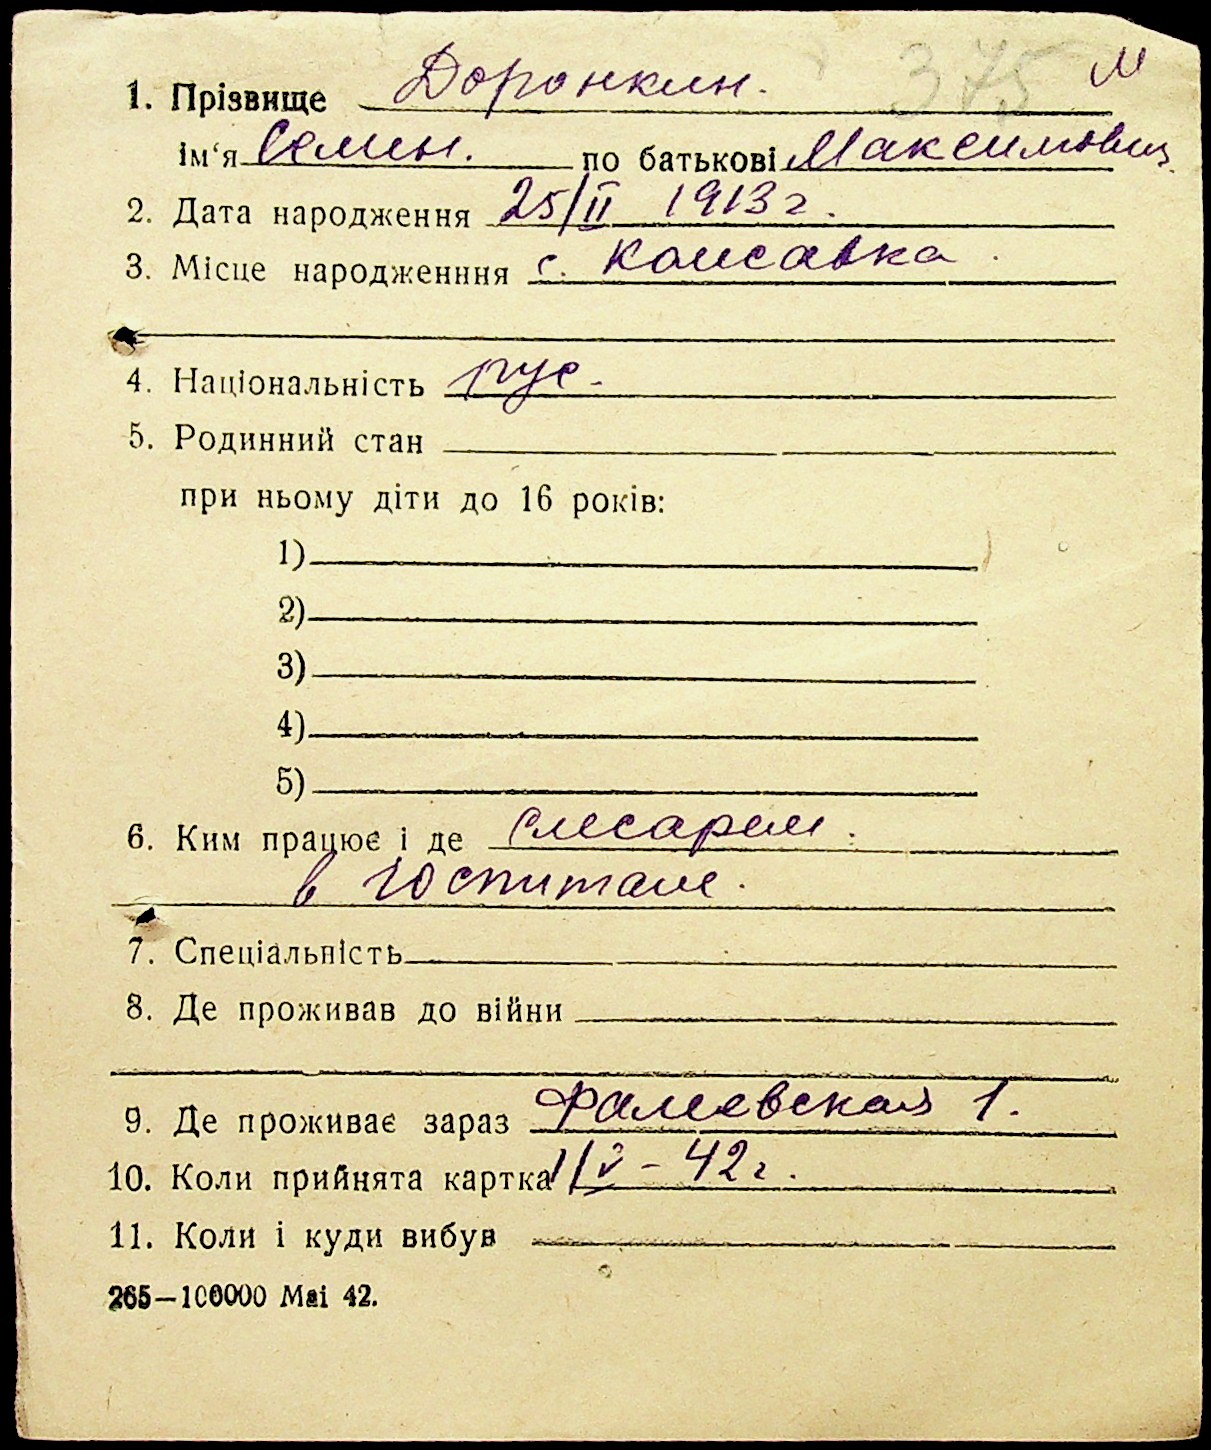 375 м
1. Прізвище Доронкин.
ім‘я Семен. по батькові Максимович
2. Дата народження 25/II 1913 г.
3. Місце народженння с.
4. Національність рус.
5. Родинний стан
при ньому діти до 16 років:
1)
2)
3)
4)
5)
6. Ким працює і де слесарем.
в госпитале.
7. Спеціальність
8. Де проживав до війни
9. Де проживає зараз Фалеевская 1.
10. Коли прийнята картка 1/V – 42 г.
11. Коли і куди вибув
265—100000 Mai 42.